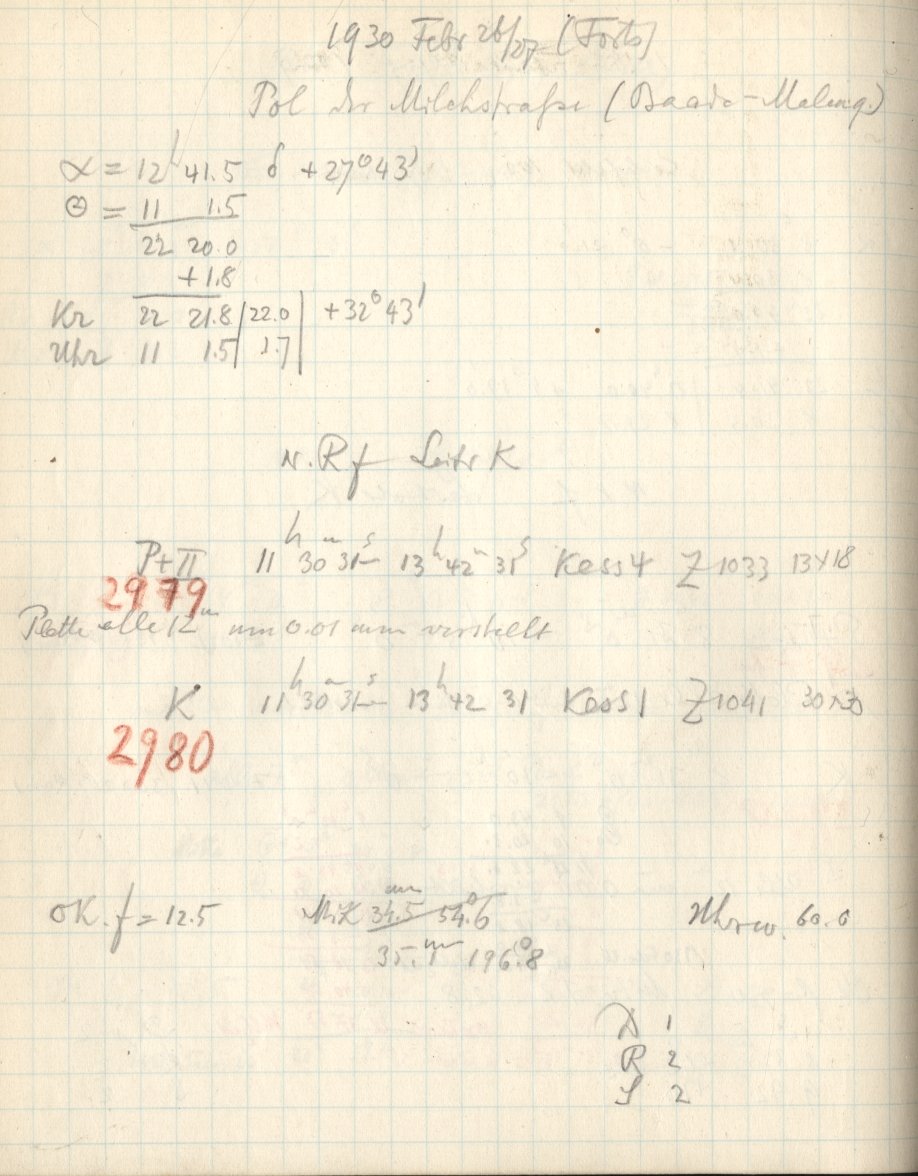 1930 Febr 26/27 (Forts)
Pol der Milchstraße (Baade-Malmq.)
α = 12h 41.5 δ +27° 43'
Θ = 11 1.5
22 20.0
+1.8
Kr 22 21.8 / 22.0 | +32° 43'
Uhr 11 1.5 / 1.7 |
N. Rf Leitr K
P+II 11h 30m 31s - 13h 42m 31s Kass 4 Z 1033 13×18
2979
Platte alle 12m um 0.01 mm verstellt
K 11h 30m 31s - 13h 42 31 Kass 1 Z 1041 30×30
2980
OK. f = 12.5 Mik 34.5mm 54.6° Uhrw. 60.0
35.1mm 196.8°
D 1
R 2
S 2